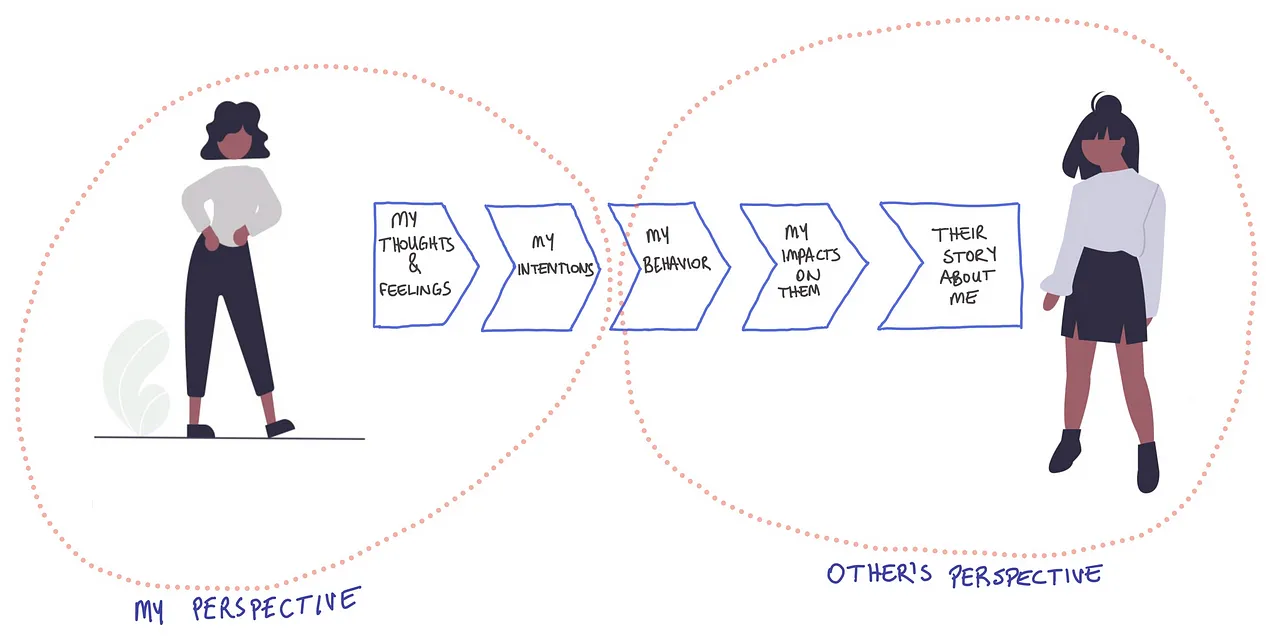 MY
THOUGHTS
&
FEELINGS
MY
INTENTIONS
MY
BEHAVIOR
MY
IMPACTS
ON
THEM
THEIR
STORY
ABOUT
ME
MY PERSPECTIVE
OTHER'S PERSPECTIVE